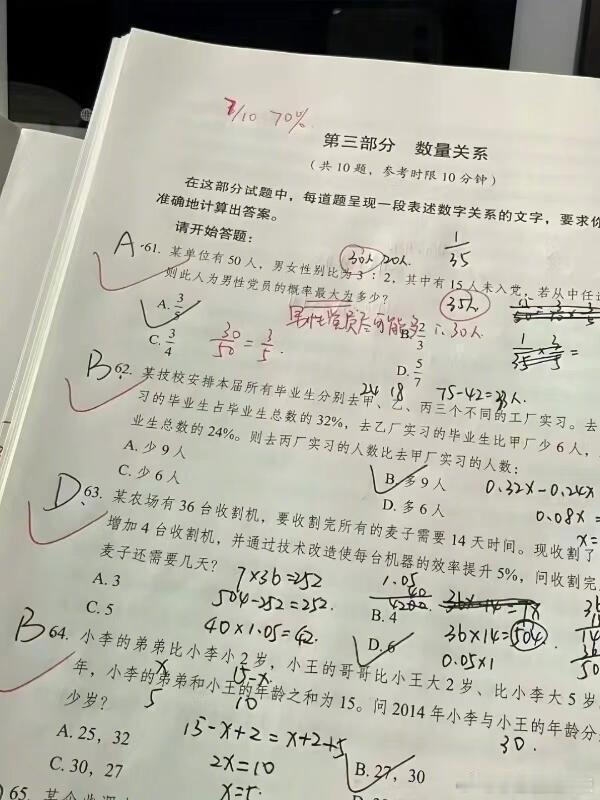 7/10 70%
第三部分 数量关系
(共10题，参考时限10分钟)
在这部分试题中，每道题呈现一段表述数字关系的文字，要求你
准确地计算出答案。
请开始答题：
1/35
30人 20人
A 61. 某单位有50人，男女性别比为3：2，其中有15人未入党，若从中任
则此人为男性党员的概率最大为多少？
35人
A. 3/5
B. 2/3
男性党员尽可能多 ∴30人
C. 3/4
30/50 = 3/5.
D. 5/7
1/35 × 3/5 =
B 62. 某技校安排本届所有毕业生分别去甲、乙、丙三个不同的工厂实习。去
24 18 75-42=33人.
习的毕业生占毕业生总数的32%，去乙厂实习的毕业生比甲厂少6人，
业生总数的24%。则去丙厂实习的人数比去甲厂实习的人数：
A. 少9人
B. 多9人
0.32x-0.24x
C. 少6人
D. 多6人
0.08x=
x=
D 63. 某农场有36台收割机，要收割完所有的麦子需要14天时间。现收割了
增加4台收割机，并通过技术改造使每台机器的效率提升5%，问收割完
麦子还需要几天？
A. 3
7×36=252
B. 4
1.05
40
4200
36×14=18
C. 5
504-252=252.
D. 6
36×14=504.
40×1.05=42.
0.05×1
B 64. 小李的弟弟比小李小2岁，小王的哥哥比小王大2岁、比小李大5岁
年，小李的弟弟和小王的年龄之和为15。问2014年小李与小王的年龄分
x 15-x
少岁？
5 10
30.
A. 25，32
15-x+2=x+2+5
B. 27，30
C. 30，27
2x=10
x=5.
65.